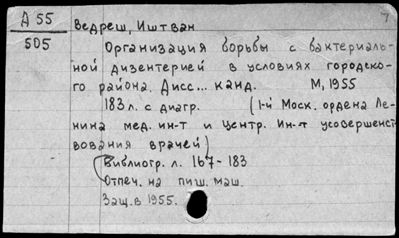 Д 55
505
7
Ведреш, Иштван
Организация борьбы с бактериаль-
ной дизентерией в условиях городско-
го района. Дисс... канд. М, 1955
183 л. с диагр. (1-й Моск. ордена Ле-
нина мед. ин-т и Центр. Ин-т усовершенст
вования врачей)
Библиогр. л. 167-183
Отпеч. на пиш. маш.
Защ. в 1955.